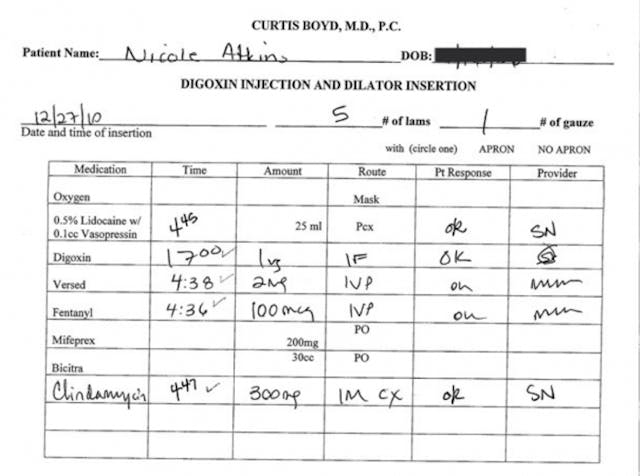 CURTIS BOYD, M.D., P.C.
Patient Name: Nicole Atkins DOB:
DIGOXIN INJECTION AND DILATOR INSERTION
12/27/10 5 # of lams 1 # of gauze
Date and time of insertion
with (circle one) APRON NO APRON
Medication Time Amount Route Pt Response Provider
Oxygen Mask
0.5% Lidocaine w/ 0.1cc Vasopressin 445 25 ml Pcx ok SN
Digoxin 1700 IF OK
Versed 4:38 2mg IVP
Fentanyl 4:36 100mcg IVP
Mifeprex 200mg PO
Bicitra 30cc PO
Clindamycin 447 300mg IM CX ok SN